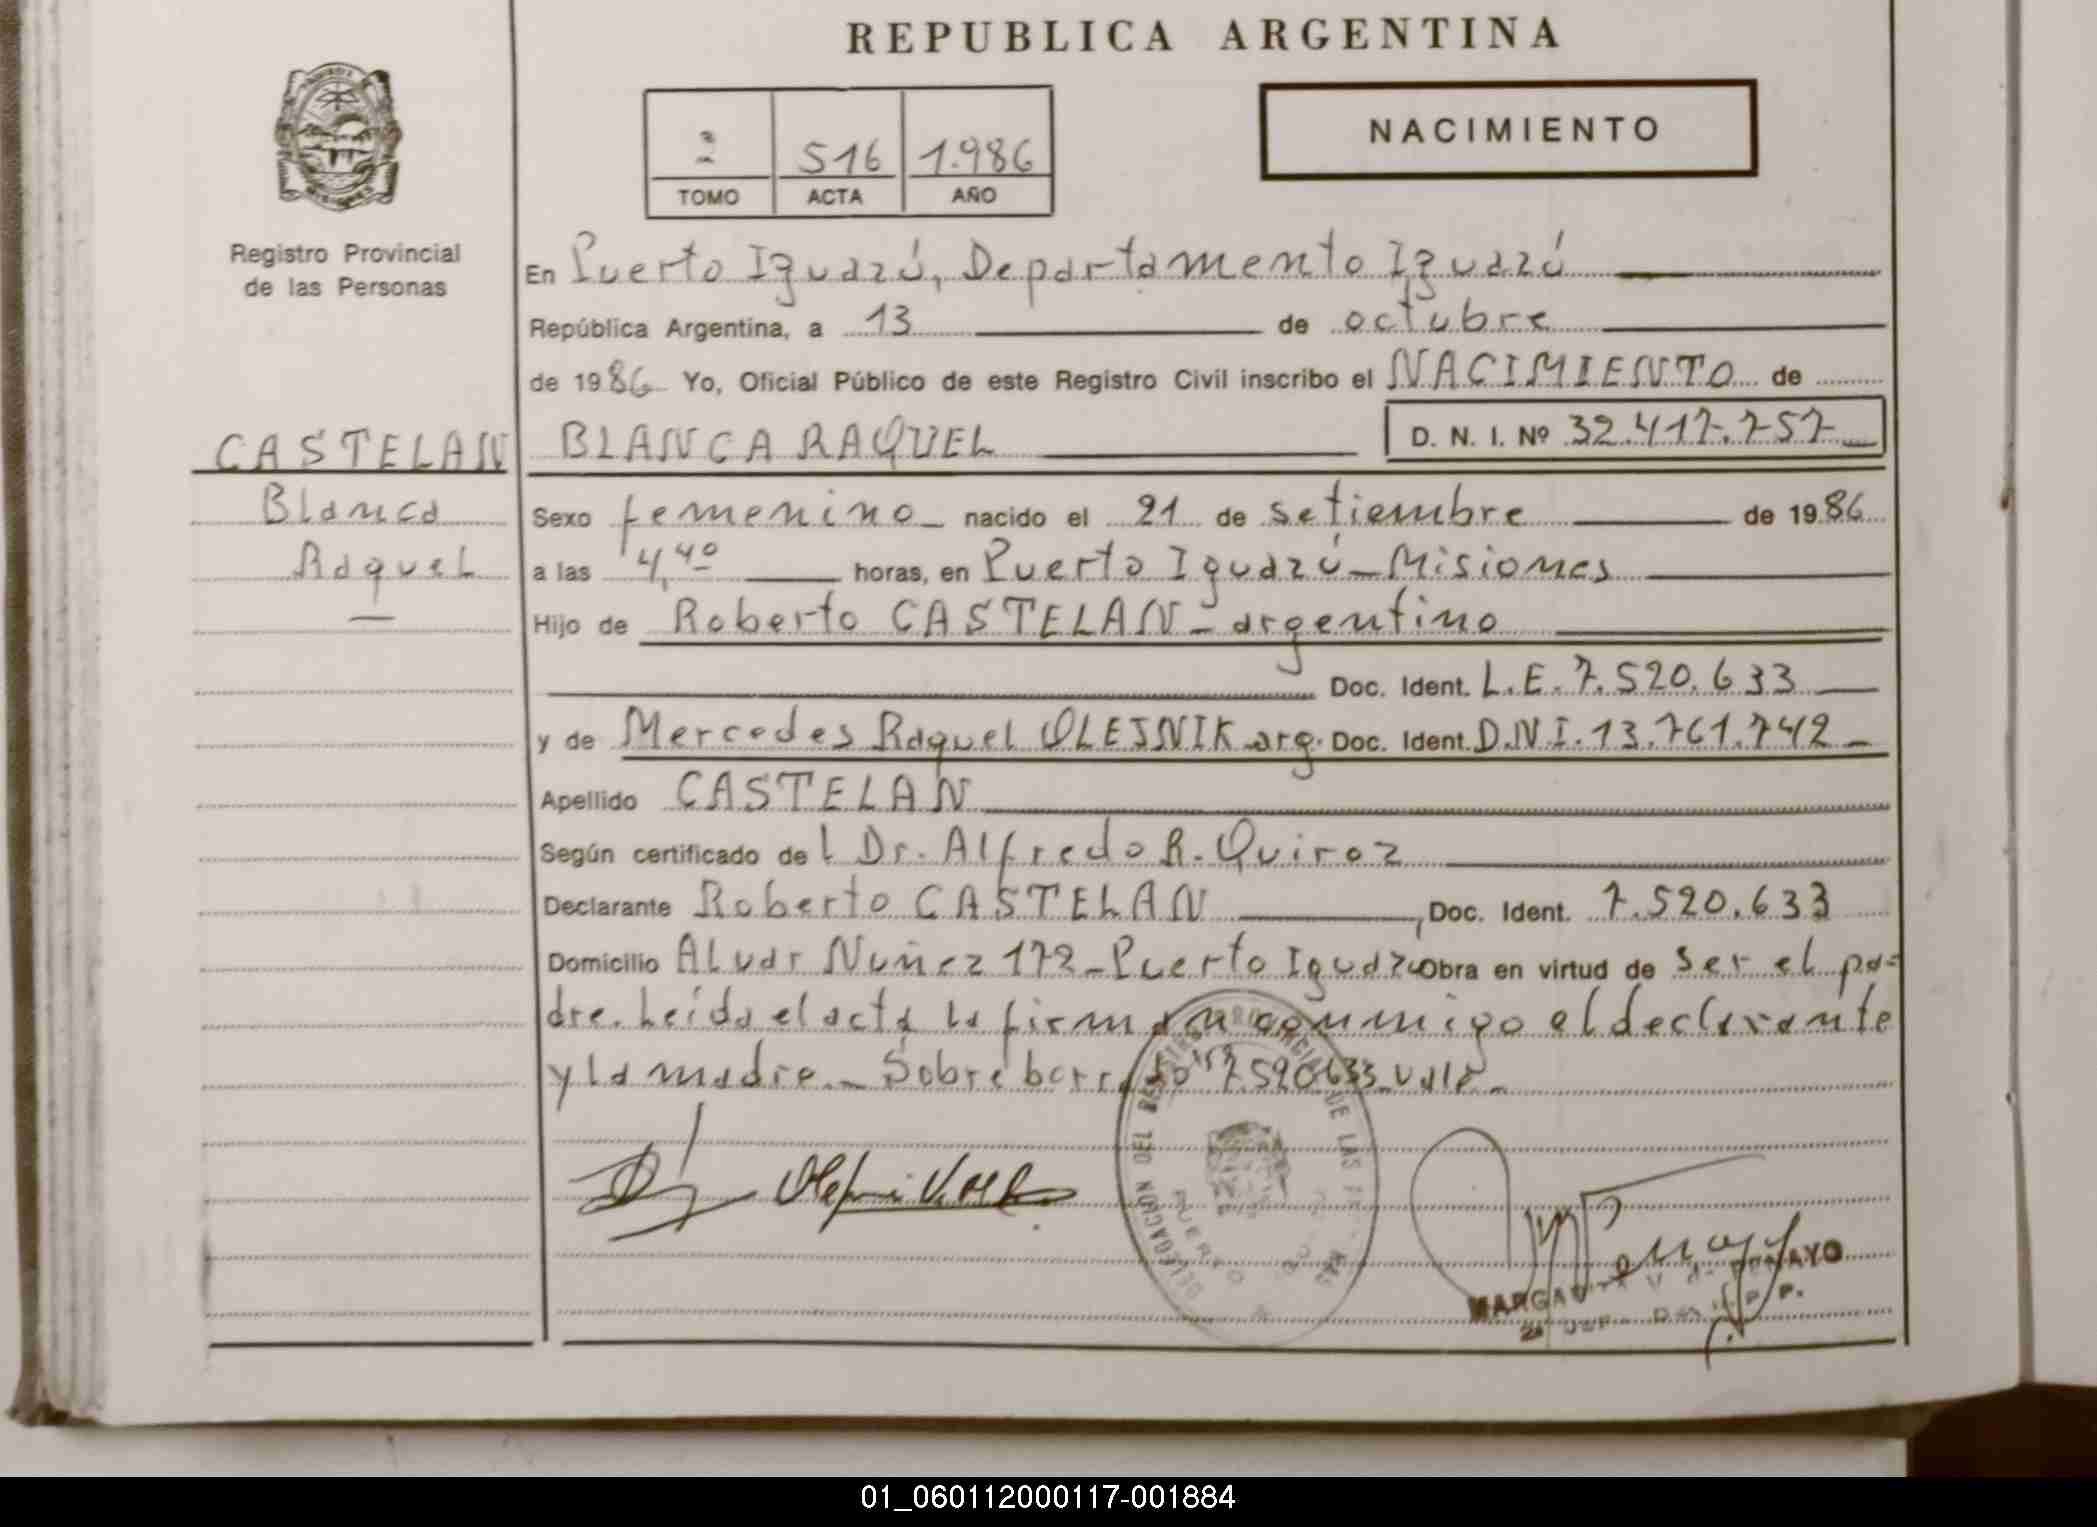 REPUBLICA ARGENTINA
NACIMIENTO
2 516 1.986
TOMO ACTA AÑO
Registro Provincial
de las Personas
En Puerto Iguazú, Departamento Iguazú
República Argentina, a 13 de octubre
de 1986 Yo, Oficial Público de este Registro Civil inscribo el NACIMIENTO de
CASTELAN BLANCA RAQUEL D. N. I. Nº 32.417.757
Blanca
Raquel
Sexo femenino nacido el 21 de setiembre de 1986
a las 4,40 horas, en Puerto Iguazú - Misiones
Hijo de Roberto CASTELAN - argentino
Doc. Ident. L.E. 7.520.633
y de Mercedes Raquel OLEJNIK arg. Doc. Ident. D.N.I. 13.761.742
Apellido CASTELAN
Según certificado del Dr. Alfredo R. Quiroz
Declarante Roberto CASTELAN, Doc. Ident. 7.520.633
Domicilio Alvar Nuñez 172 - Puerto Iguazú Obra en virtud de ser el pa-
dre. Leída el acta la firman conmigo el declarante
y la madre. - Sobre borrado 7.520.633 vale -
DELEGACION DEL REGISTRO PROVINCIAL DE LAS
PUERTO
MARGARITA V. de PENAYO
01_060112000117-001884